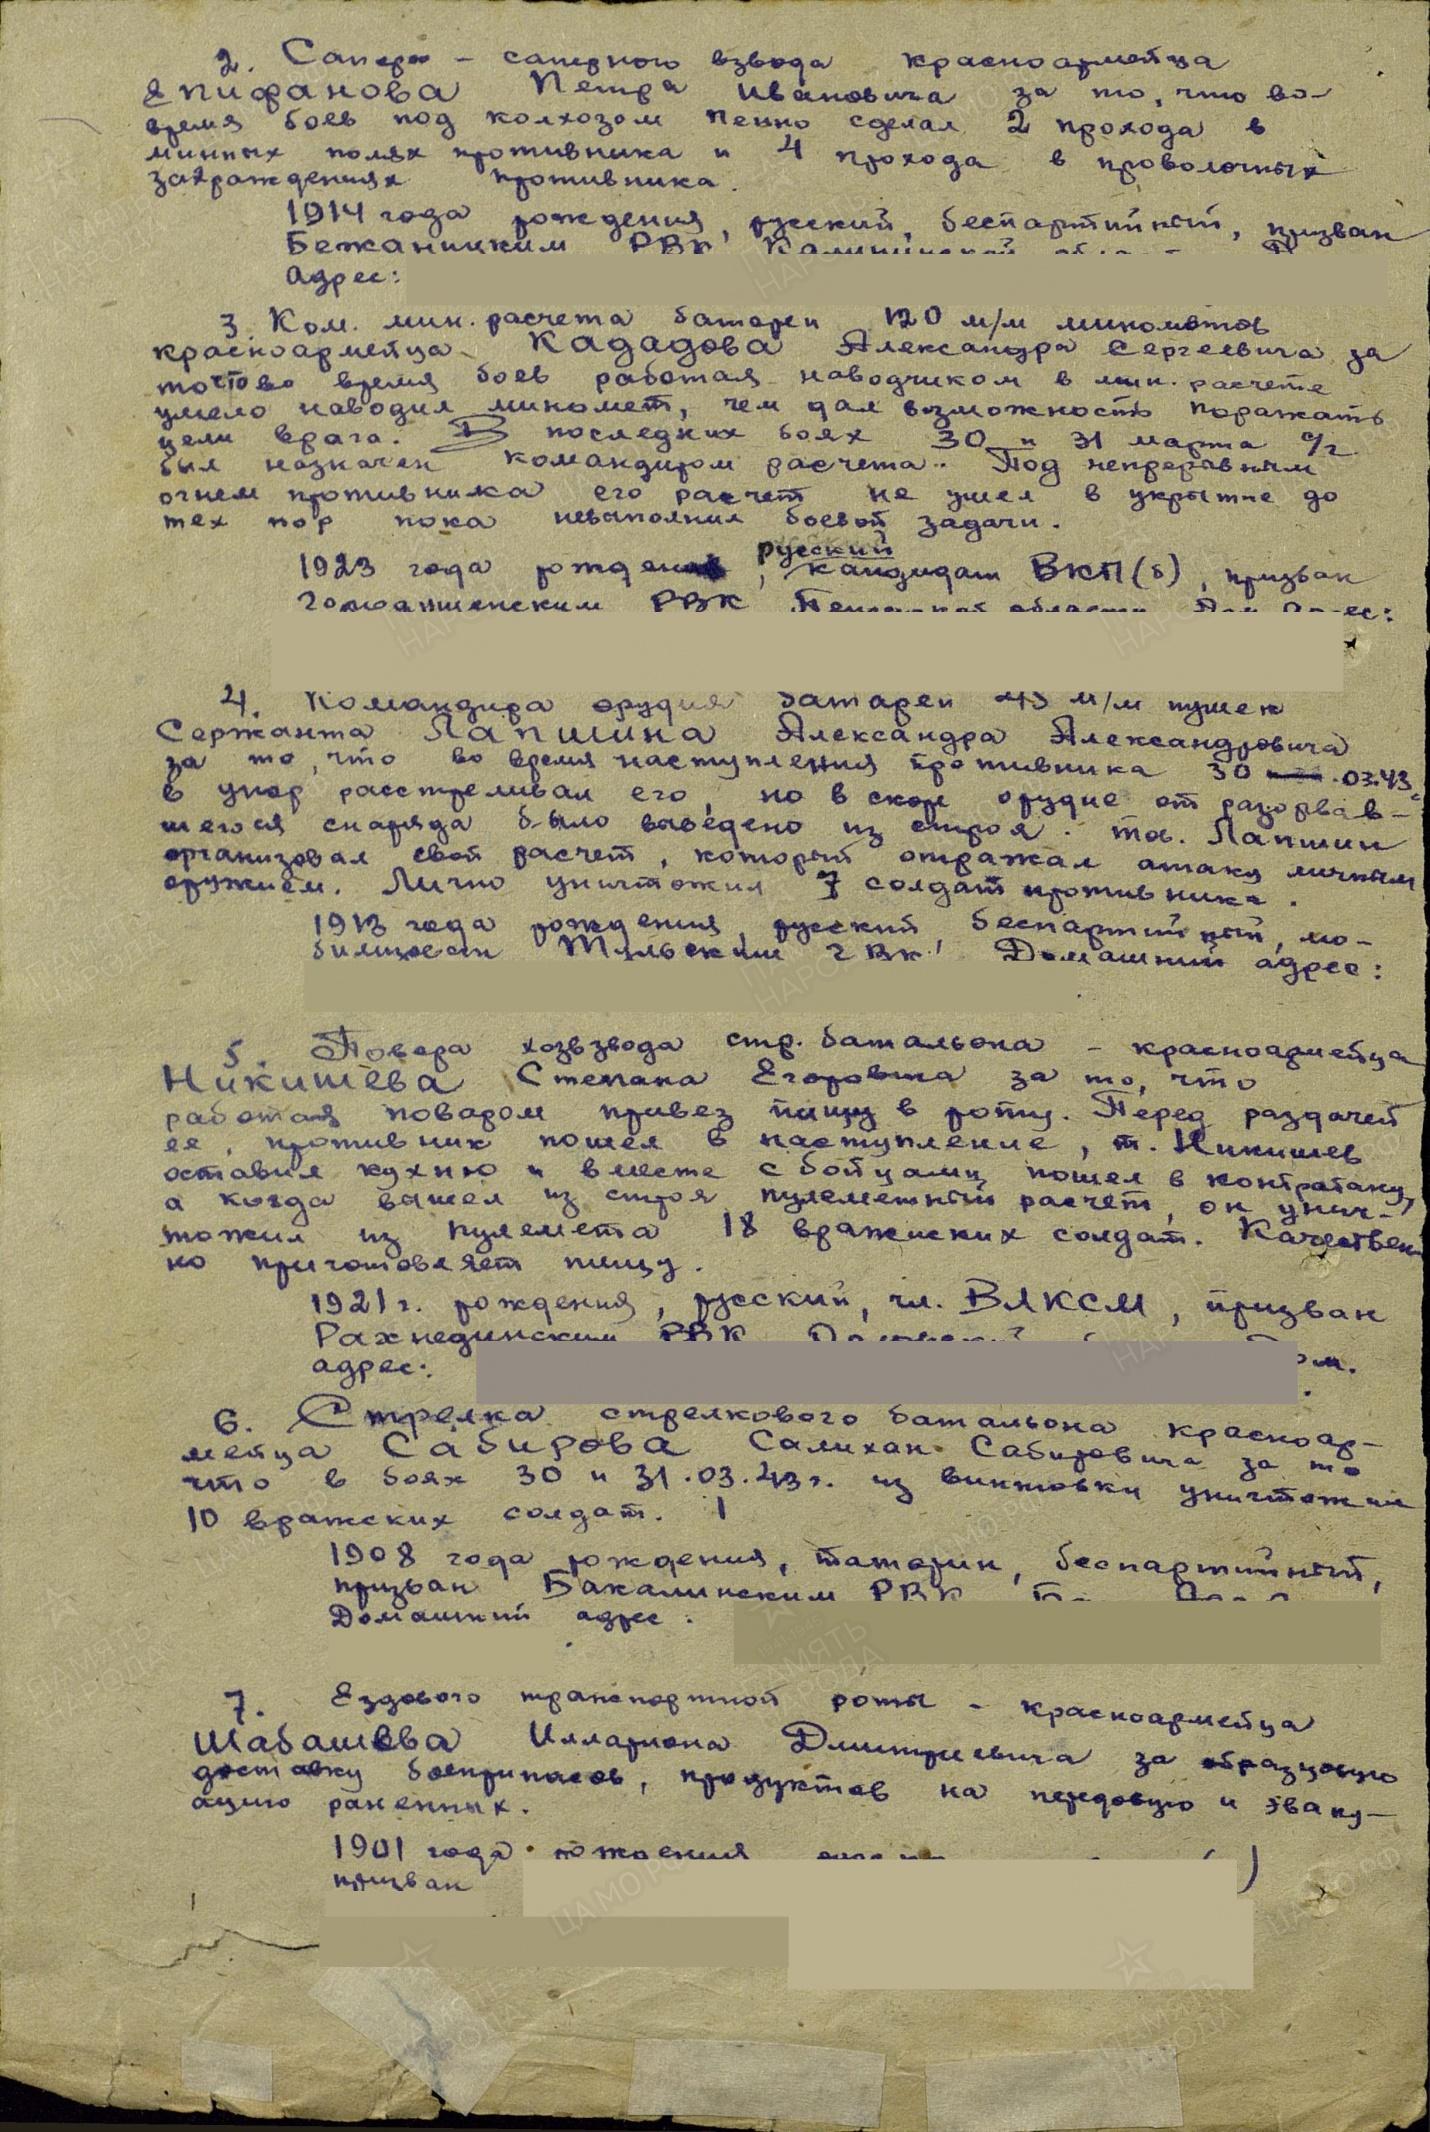 2. Сапера - саперного взвода красноармейца
Епифанова Петра Ивановича за то, что во-
время боев под колхозом Пенно сделал 2 прохода в
минных полях противника и 4 прохода в проволочных
заграждениях противника.
1914 года рождения, русский, беспартийный, призван
Бежаницким РВК Калининской
Адрес:
3 Ком. мин. расчета батареи 120 м/м минометов
красноармейца Кададова Александра Сергеевича за
то что во время боев работая наводчиком в мин. расчете
умело наводил миномет, чем дал возможность поражать
цели врага. В последних боях 30 и 31 марта с/г
был назначен командиром расчета. Под непрерывным
огнем противника его расчет не ушел в укрытие до
тех пор пока невыполнил боевой задачи.
русский
1923 года рождения, кандидат ВКП(б), призван
РВК Пензенской области
4. Командира орудия батареи 45 м/м пушек
Сержанта Лапшина Александра Александровича
за то, что во время наступления противника 30 .03.43
в упор расстреливал его, но вскоре орудие от разорвав-
шегося снаряда было выведено из строя. тов. Лапшин
организовал свой расчет, который отражал атаку личным
оружием. Лично уничтожил 7 солдат противника.
1913 года рождения, русский беспартийный, мо-
билизован Тульским ГВК. Домашний адрес:
5. Повара хозвзвода стр. батальона - красноармейца
Никишева Степана Егоровича за то, что
работая поваром привез пищу в роту. Перед раздачей
ее, противник пошел в наступление, т. Никишев
оставил кухню и вместе с бойцами пошел в контратаку,
а когда вышел из строя пулеметный расчет, он унич-
тожил из пулемета 18 вражеских солдат. Качествен
но приготовляет пищу.
1921 г. рождения, русский, чл. ВЛКСМ, призван
РВК
адрес:
6. Стрелка стрелкового батальона красноар-
мейца Сабирова Салихан Сабировича за то
что в боях 30 и 31.03.43 г. из винтовки уничтожил
10 вражских солдат.
1908 года рождения, татарин, беспартийный,
призван Бакалинским РВК
Домашний адрес:
7. Ездового транспортной роты - красноармейца
Шабашева Иллариона Дмитриевича за образцовую
доставку боеприпасов, продуктов на передовую и эваку-
ацию раненных.
1901 года рождения
призван